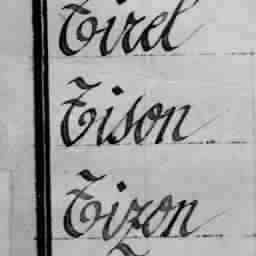 Tirel
Tison
Tizon